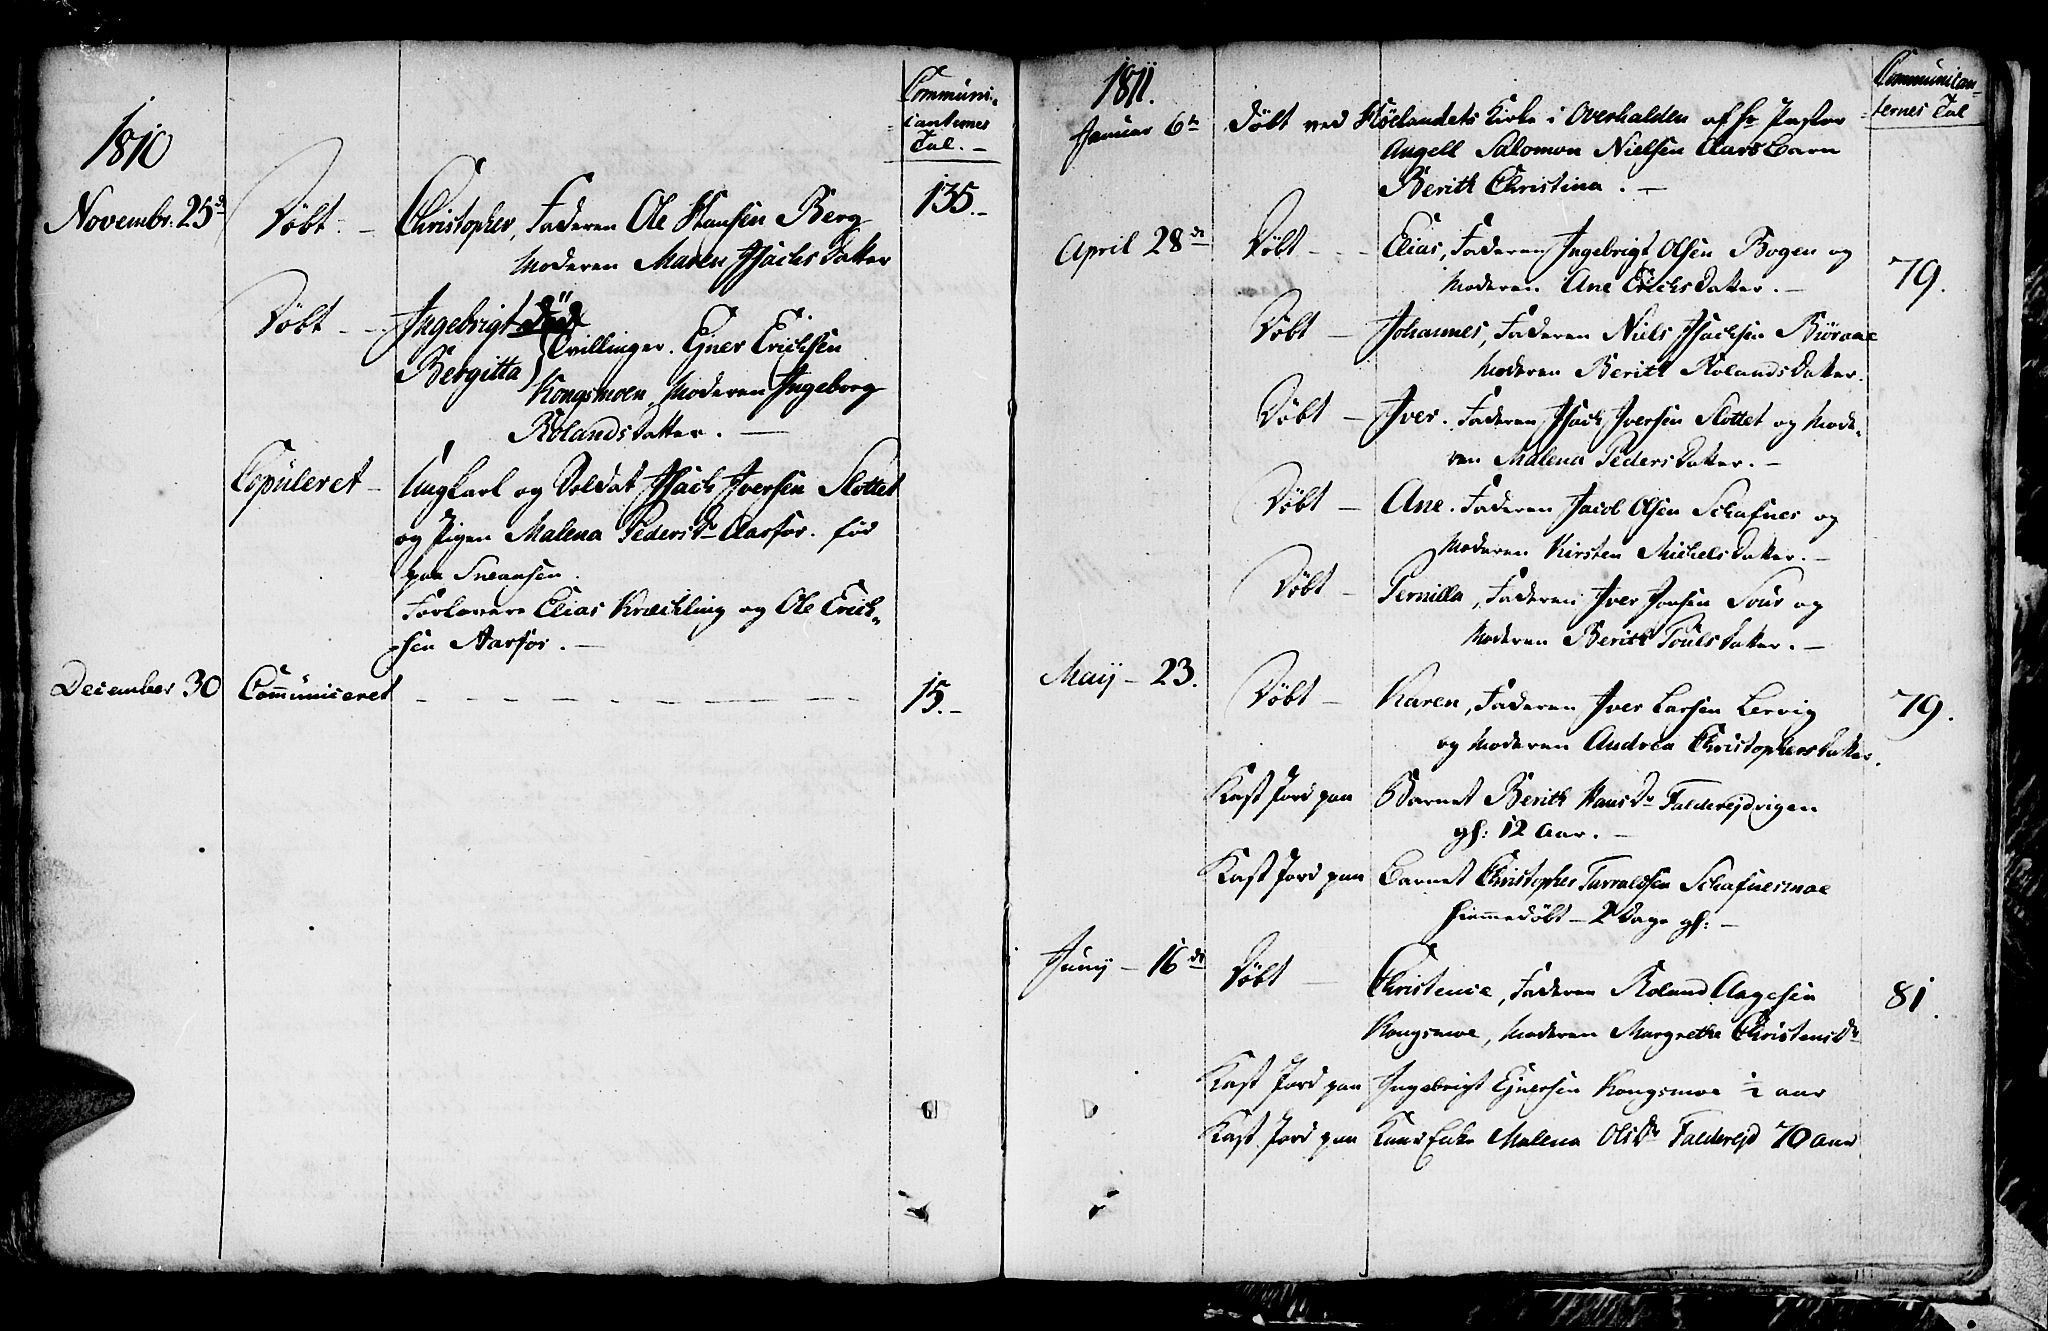 1810
Communi-
cantenes
Tal. -
Novembr. 25d Döbt - Christopher, Faderen Ole Hansen Berg 135. -
Moderen Maren Isachs Datter
Döbt - Ingebrigt
Tvillinger. Ejner Erichsen
Bergitta
Kongsmoen, Moderen Ingeborg
Rolands Datter. -
Copuleret - Ungkarl og Soldat Isach Iversen Slottet
og Pigen Malena Peders Dr Aarfor. før
paa
Forlovere Elias Krechling og Ole Erich-
sen Aarfor. -
December 30 Communiceret - - - - - - - - 15. -
1811.
Communican-
ternes Tal
Januar 6te Döbt ved Skölandets Kirke i Overhalden af Hr Pastor
Angell Salomon Nielsen Aars Barn
Berith Christina. -
April 28de Döbt - - Elias, Faderen Ingebrigt Olsen Bogen og 79.
Moderen Ane Erichs Datter. -
Döbt - Johannes, Faderen Niels Isachsen Biöraae
Moderen Berith Rolands Datter.
Döbt - Iver. Faderen Isach Iversen Slottet og Mode-
ren Malena Peders Datter. -
Döbt - Ane. Faderen Jacob Olsen Schafnes og
Moderen Kirsten Michels Datter. -
Döbt - Pernilla, Faderen Iver Jonsen og
Moderen Berith Pouls Datter. -
Maij - 23. Döbt - Karen, Faderen Iver Larsen Lervig 79.
og Moderen Andrea Christophers Datter.
Kast Jord paa Barnet Berith Hans Dr Falderejdrigen
gl: 12 Aar. -
Kast Jord paa Barnet Christopher Tarraldsen Schafnesmoe
hiemmedöbt - 2 Dage gl: -
Junij - 16de Döbt - Christence, Faderen Roland Aagesen 81.
Kongsmoe, Moderen Margrethe Christens Dr
Kast Jord paa Ingebrigt Ejnersen Kongsmoe ½ aar
Kast Jord paa Enke Malena Ols Dr Falderejd 70 aar